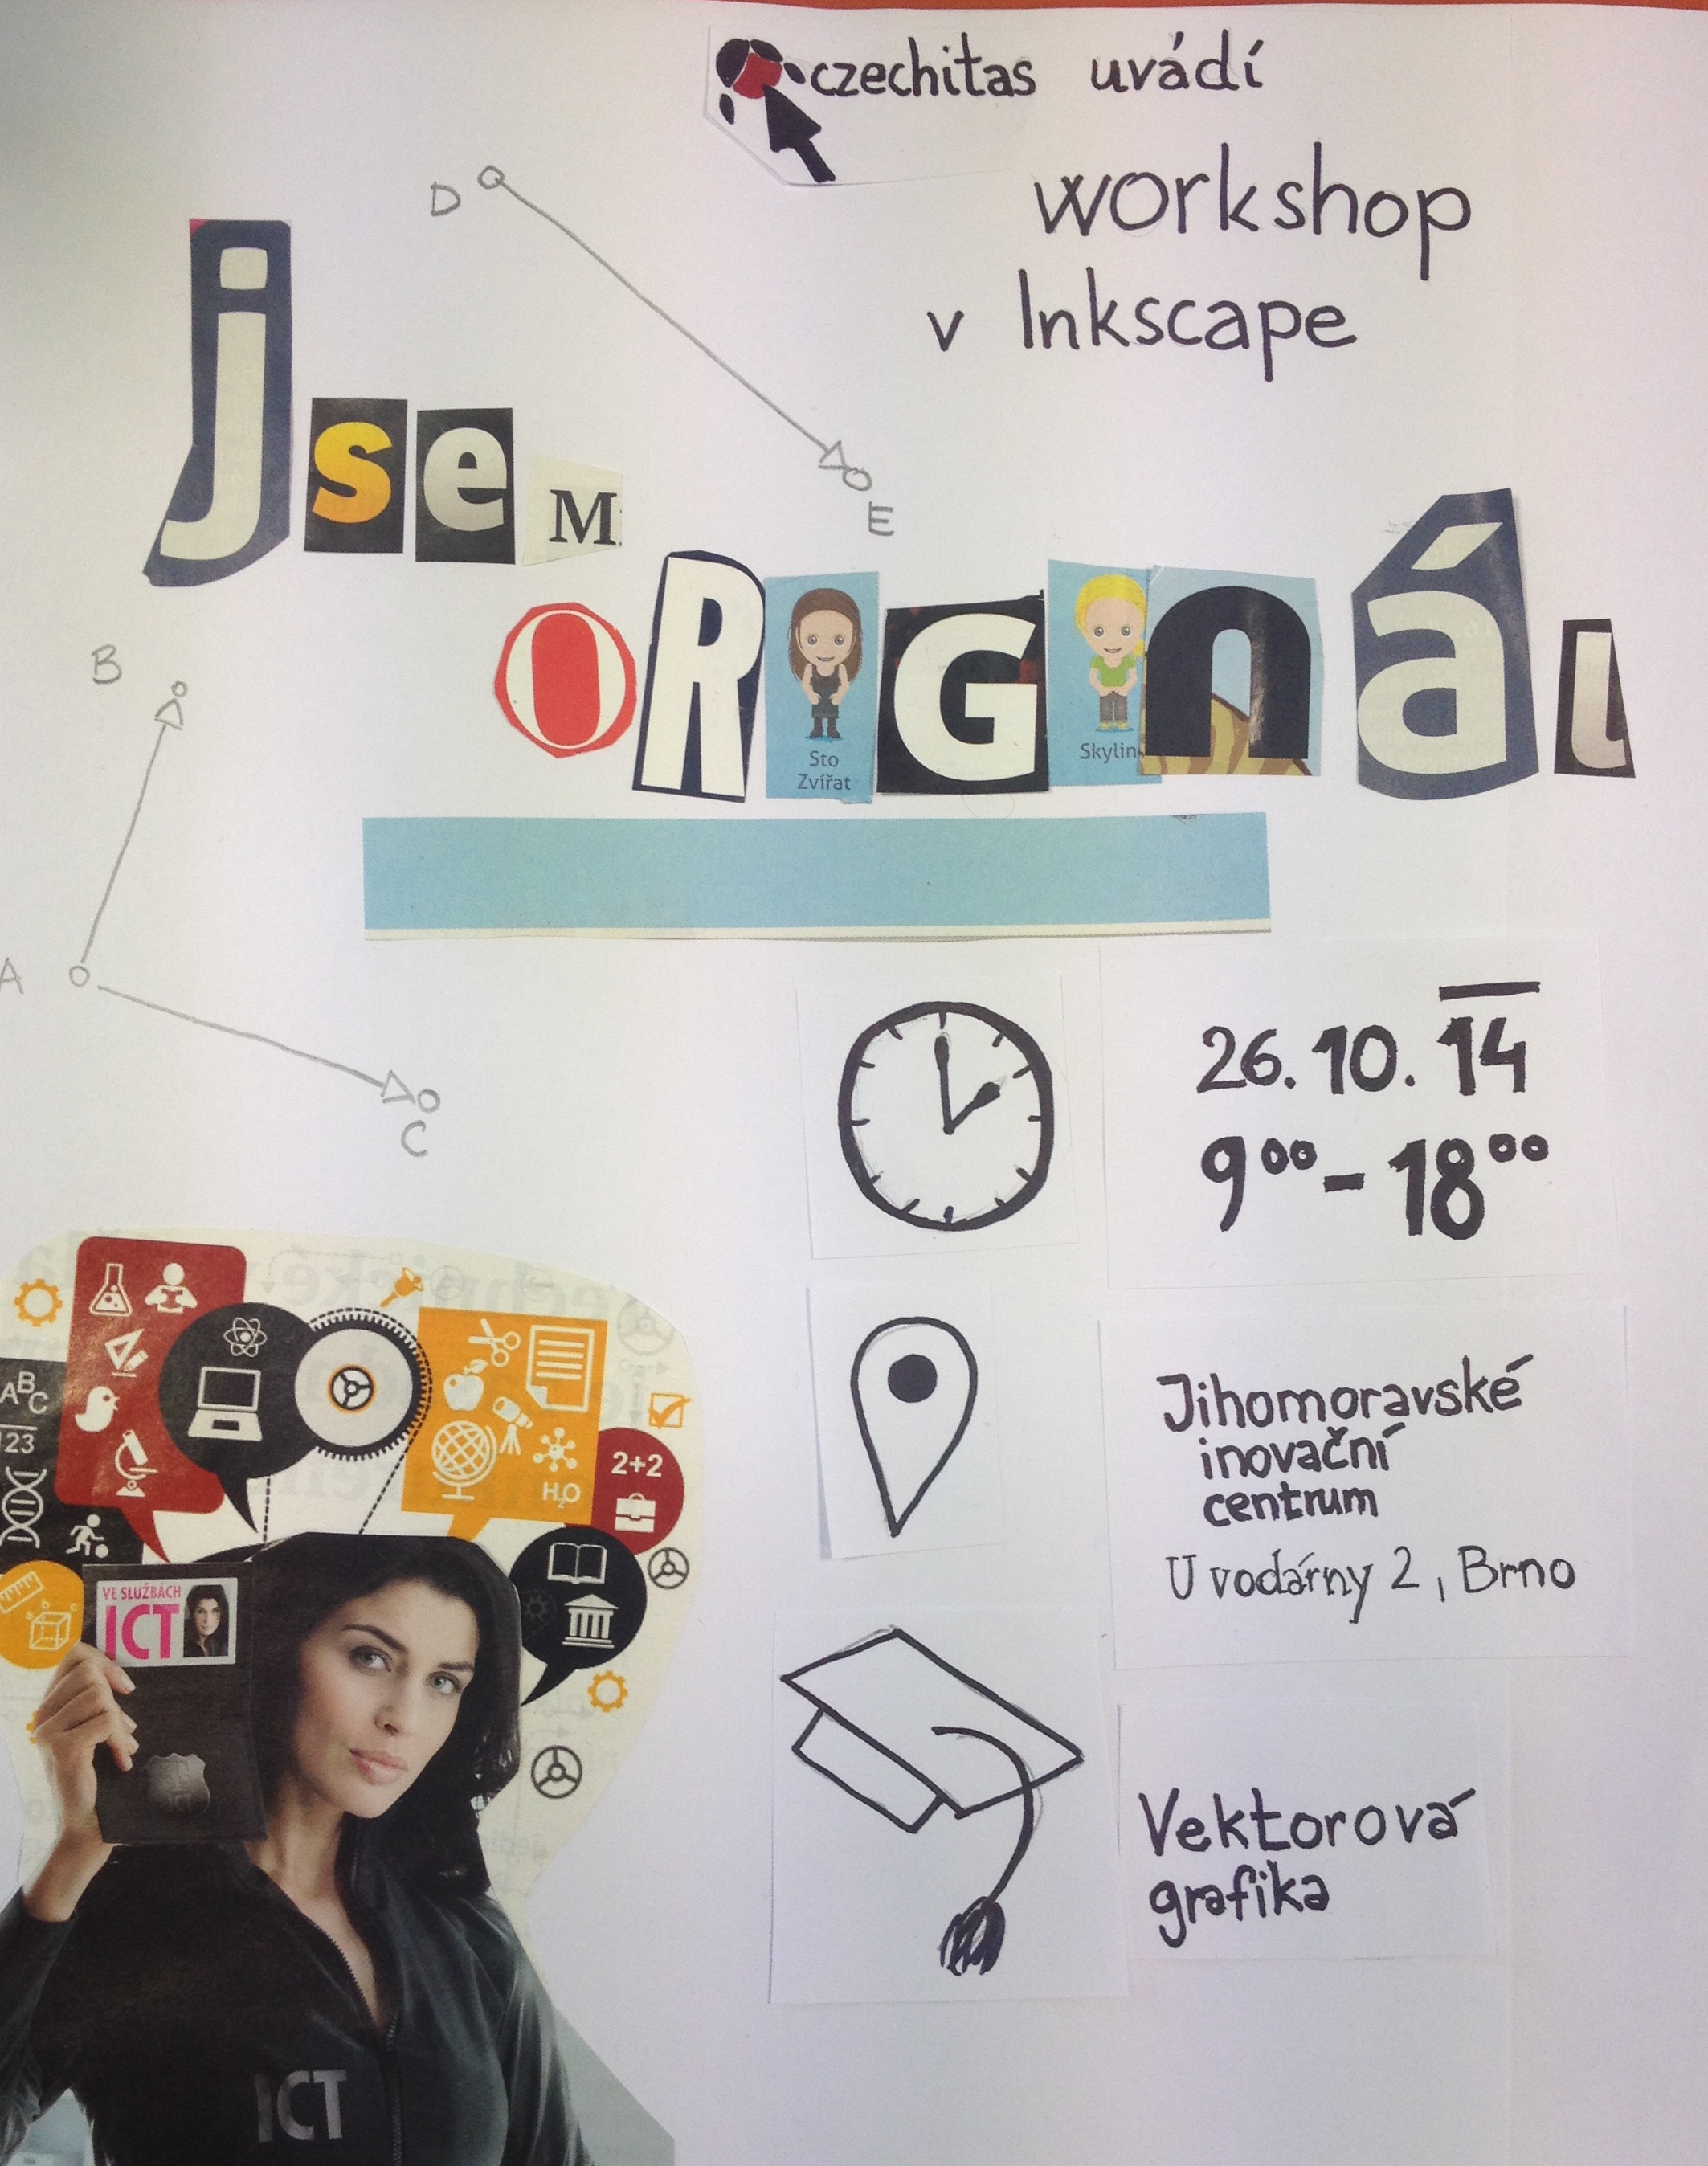 czechitas uvádí
workshop
v Inkscape
D
E
jseM
ORGnál
Sto
Zvířat
Skylin
B
A
C
26. 10. 14
9⁰⁰ - 18⁰⁰
Jihomoravské
inovační
centrum
U vodárny 2, Brno
Vektorová
grafika
ABC
123
2+2
H₂O
a b c
VE SLUŽBÁCH
ICT
ICT